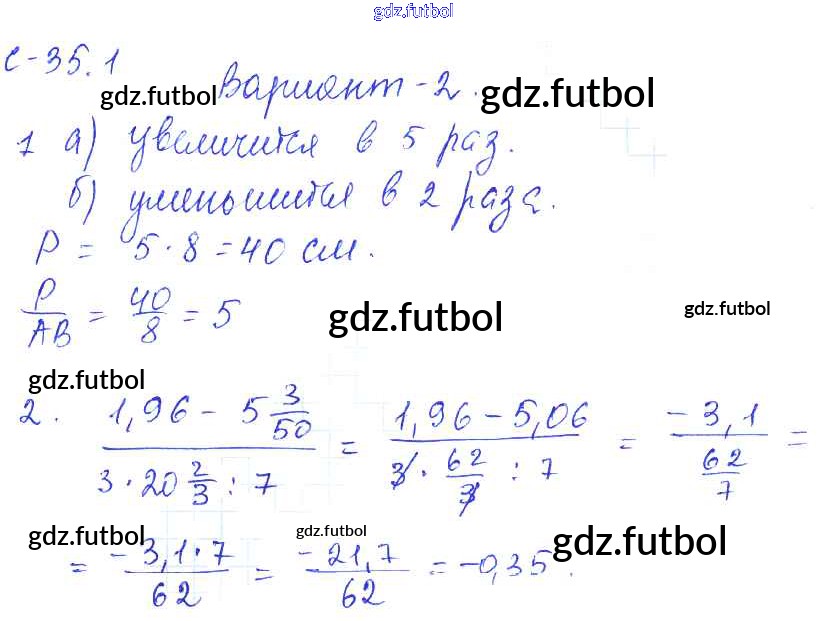 gdz.futbol
С-35.1
gdz.futbol Вариант-2. gdz.futbol
1 а) увеличится в 5 раз.
б) уменьшится в 2 раза.
P = 5·8 = 40 см.
P/AB = 40/8 = 5 gdz.futbol gdz.futbol
gdz.futbol
2. (1,96 - 5 3/50)/(3·20 2/3 : 7) = (1,96 - 5,06)/(3·62/3 : 7) = (-3,1)/(62/7) =
gdz.futbol gdz.futbol gdz.futbol
= (-3,1·7)/62 = (-21,7)/62 = -0,35.